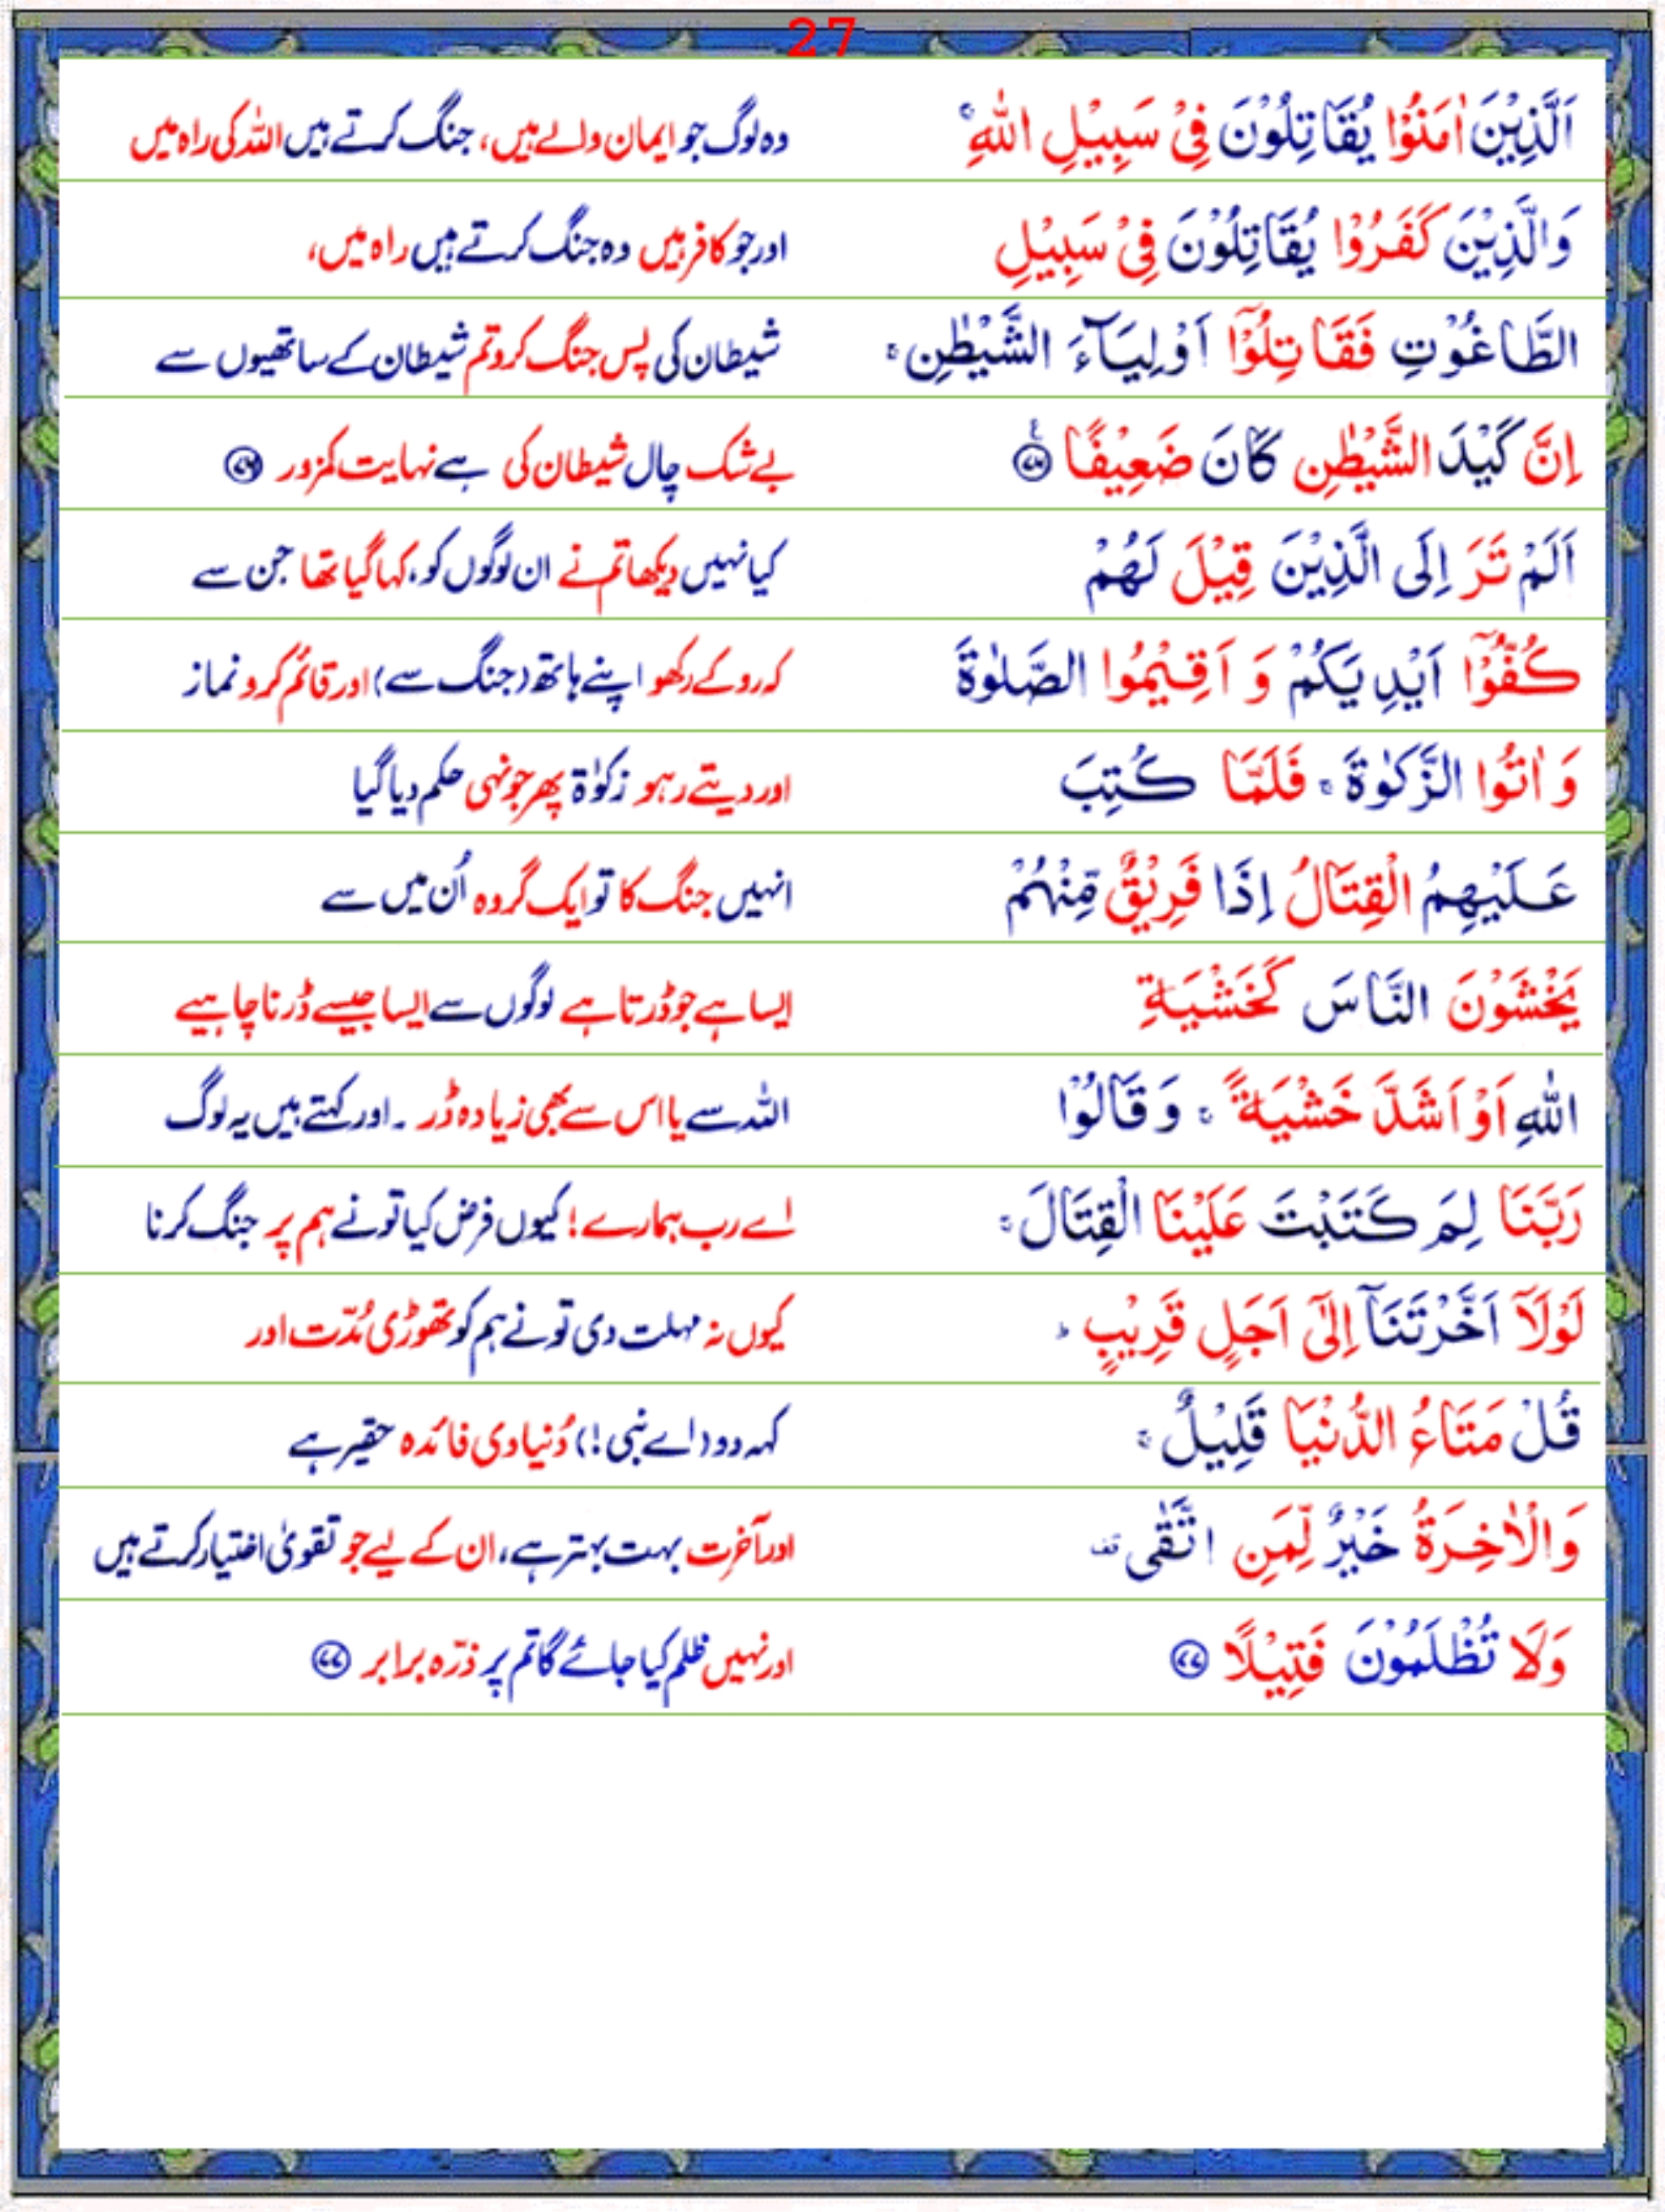 27
اَلَّذِيْنَ اٰمَنُوْا يُقَاتِلُوْنَ فِيْ سَبِيْلِ اللّٰهِ ۚ وہ لوگ جو ایمان والے ہیں، جنگ کرتے ہیں اللہ کی راہ میں
وَالَّذِيْنَ كَفَرُوْا يُقَاتِلُوْنَ فِيْ سَبِيْلِ اور جو کافر ہیں وہ جنگ کرتے ہیں راہ میں،
الطَّاغُوْتِ فَقَاتِلُوْٓا اَوْلِيَآءَ الشَّيْطٰنِ ۚ شیطان کی پس جنگ کرو تم شیطان کے ساتھیوں سے
اِنَّ كَيْدَ الشَّيْطٰنِ كَانَ ضَعِيْفًا ۧ ﴿۷۶﴾ بے شک چال شیطان کی ہے نہایت کمزور ﴿۷۶﴾
اَلَمْ تَرَ اِلَى الَّذِيْنَ قِيْلَ لَهُمْ کیا نہیں دیکھا تم نے ان لوگوں کو، کہا گیا تھا جن سے
كُفُّوْٓا اَيْدِيَكُمْ وَ اَقِيْمُوا الصَّلٰوةَ کہ روکے رکھو اپنے ہاتھ (جنگ سے) اور قائم کرو نماز
وَ اٰتُوا الزَّكٰوةَ ۚ فَلَمَّا كُتِبَ اور دیتے رہو زکوٰۃ پھر جونہی حکم دیا گیا
عَلَيْهِمُ الْقِتَالُ اِذَا فَرِيْقٌ مِّنْهُمْ انہیں جنگ کا تو ایک گروہ اُن میں سے
يَخْشَوْنَ النَّاسَ كَخَشْيَةِ ایسا ہے جو ڈرتا ہے لوگوں سے ایسا جیسے ڈرنا چاہیے
اللّٰهِ اَوْ اَشَدَّ خَشْيَةً ۚ وَ قَالُوْا اللہ سے یا اس سے بھی زیادہ ڈر ۔ اور کہتے ہیں یہ لوگ
رَبَّنَا لِمَ كَتَبْتَ عَلَيْنَا الْقِتَالَ ۚ اے رب ہمارے! کیوں فرض کیا تو نے ہم پر جنگ کرنا
لَوْلَآ اَخَّرْتَنَآ اِلٰٓى اَجَلٍ قَرِيْبٍ ؕ کیوں نہ مہلت دی تو نے ہم کو تھوڑی مُدّت اور
قُلْ مَتَاعُ الدُّنْيَا قَلِيْلٌ ۚ کہہ دو (اے نبی!) دُنیاوی فائدہ حقیر ہے
وَالْاٰخِرَةُ خَيْرٌ لِّمَنِ اتَّقٰى ۫ اور آخرت بہت بہتر ہے، ان کے لیے جو تقویٰ اختیار کرتے ہیں
وَلَا تُظْلَمُوْنَ فَتِيْلًا ﴿۷۷﴾ اور نہیں ظلم کیا جائے گا تم پر ذرّہ برابر ﴿۷۷﴾